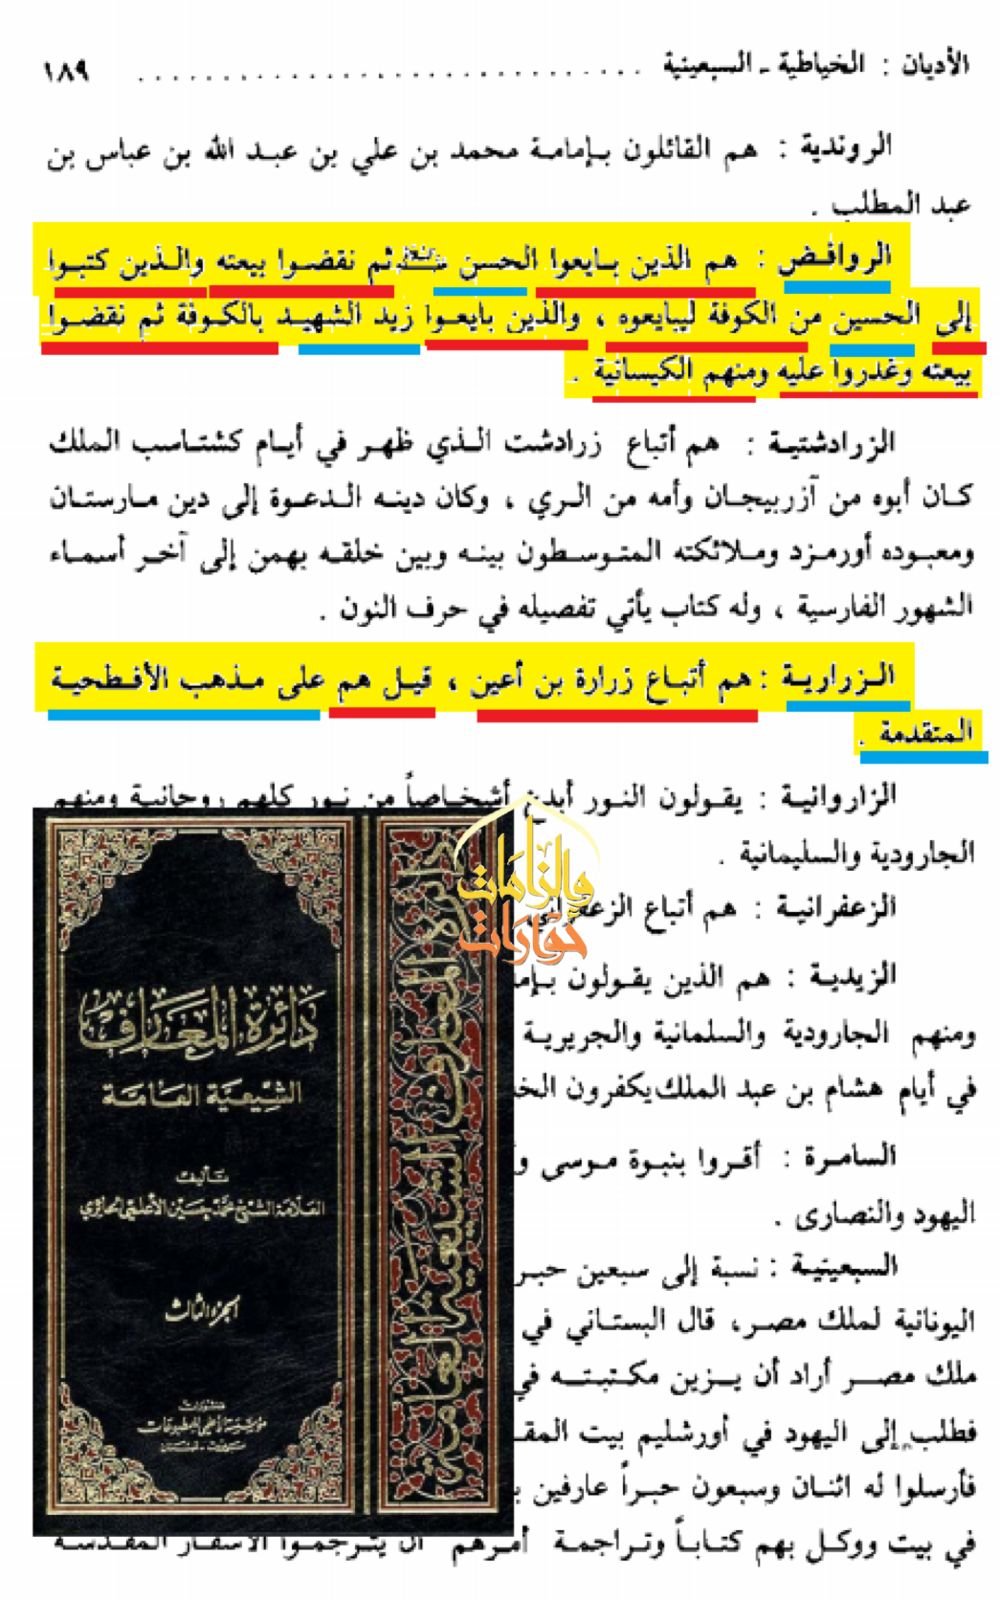 الأديان : الخياطية ـ السبعينية ........................ ١٨٩
الروندية : هم القائلون بإمامة محمد بن علي بن عبد الله بن عباس بن
عبد المطلب .
الروافض : هم الذين بايعوا الحسن ثم نقضوا بيعته والذين كتبوا
إلى الحسين من الكوفة ليبايعوه ، والذين بايعوا زيد الشهيد بالكوفة ثم نقضوا
بيعته وغدروا عليه ومنهم الكيسانية .
الزرادشتية : هم أتباع زرادشت الذي ظهر في أيام كشتاسب الملك
كان أبوه من آزربيجان وأمه من الري ، وكان دينه الدعوة إلى دين مارستان
ومعبوده أورمزد وملائكته المتوسطون بينه وبين خلقه بهمن إلى آخر أسماء
الشهور الفارسية ، وله كتاب يأتي تفصيله في حرف النون .
الزرارية : هم أتباع زرارة بن أعين ، قيل هم على مذهب الأفطحية
المتقدمة .
الزاروانية : يقولون النور أبدع أشخاصاً من نور كلهم روحانية ومنهم
الجارودية والسليمانية .
الزعفرانية : هم أتباع
الزيدية : هم الذين يقولون
ومنهم الجارودية والسلمانية والجريرية
في أيام هشام بن عبد الملك يكفرون
السامرة : أقروا بنبوة موسى
اليهود والنصارى .
السبعينية : نسبة إلى سبعين
اليونانية لملك مصر، قال البستاني في
ملك مصر أراد أن يزين مكتبته
فطلب إلى اليهود في أورشليم بيت
فأرسلوا له اثنان وسبعون حبراً عارفين
في بيت ووكل بهم كتاباً وتراجمة أمرهم أن يترجموا الأسفار المقدسة
حوارات
وإلزامات
دائرة المعارف
الشيعية العامة
تأليف
العلامة الشيخ محمد حسين الأعلمي الحائري
الجزء الثالث
منشورات
مؤسسة الأعلمي للمطبوعات
بيروت - لبنان
دائرة المعارف الشيعية العامة